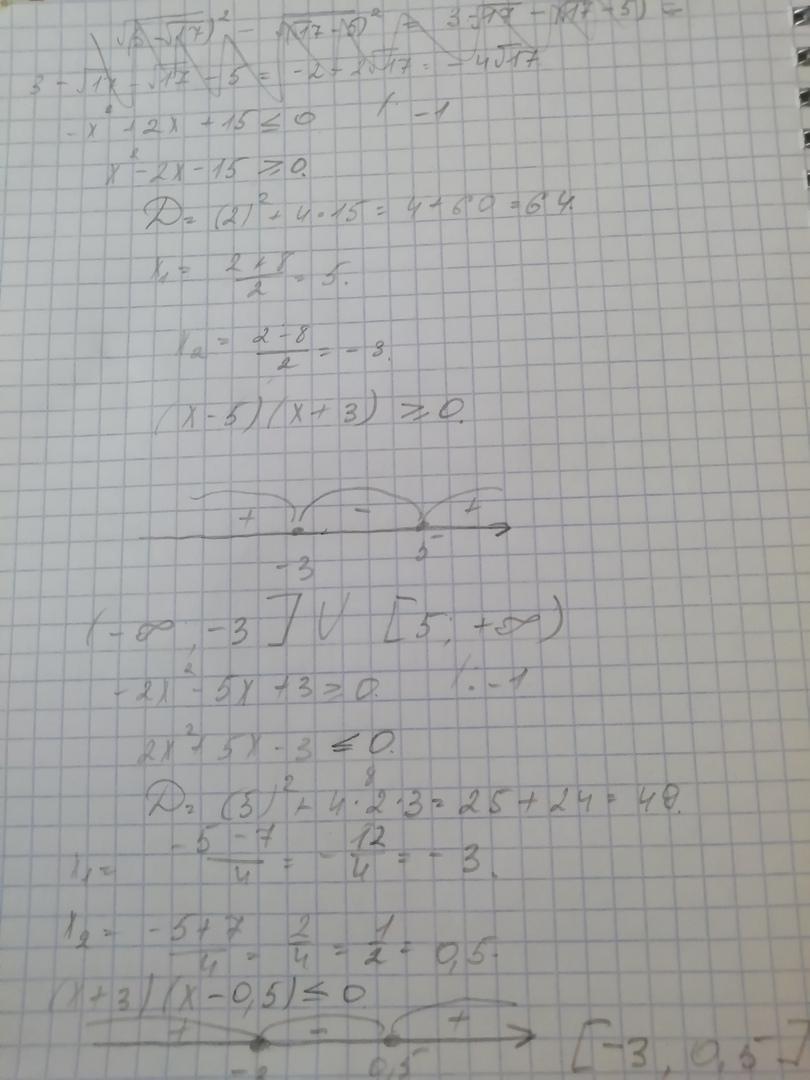 √(3-√17)² - √(√17-5)² = 3-√17 - (√17-5) =
3-√17-√17-5 = -2-2√17 = -4√17
-x²+2x+15≤0 /: -1
x²-2x-15≥0.
D=(2)²+4·15=4+60=64.
x₁= (2+8)/2 = 5.
x₂= (2-8)/2 = -3.
(x-5)(x+3)≥0.
+ - +
-3 5
(-∞, -3] ∪ [5; +∞)
-2x²-5x+3≥0. /: -1
2x²+5x-3≤0.
D=(5)²+4·2·3=25+24=49.
x₁= (-5-7)/4 = -12/4 = -3.
x₂= (-5+7)/4 = 2/4 = 1/2 = 0,5.
(x+3)(x-0,5)≤0
+ - +
-3 0,5 [-3, 0,5]